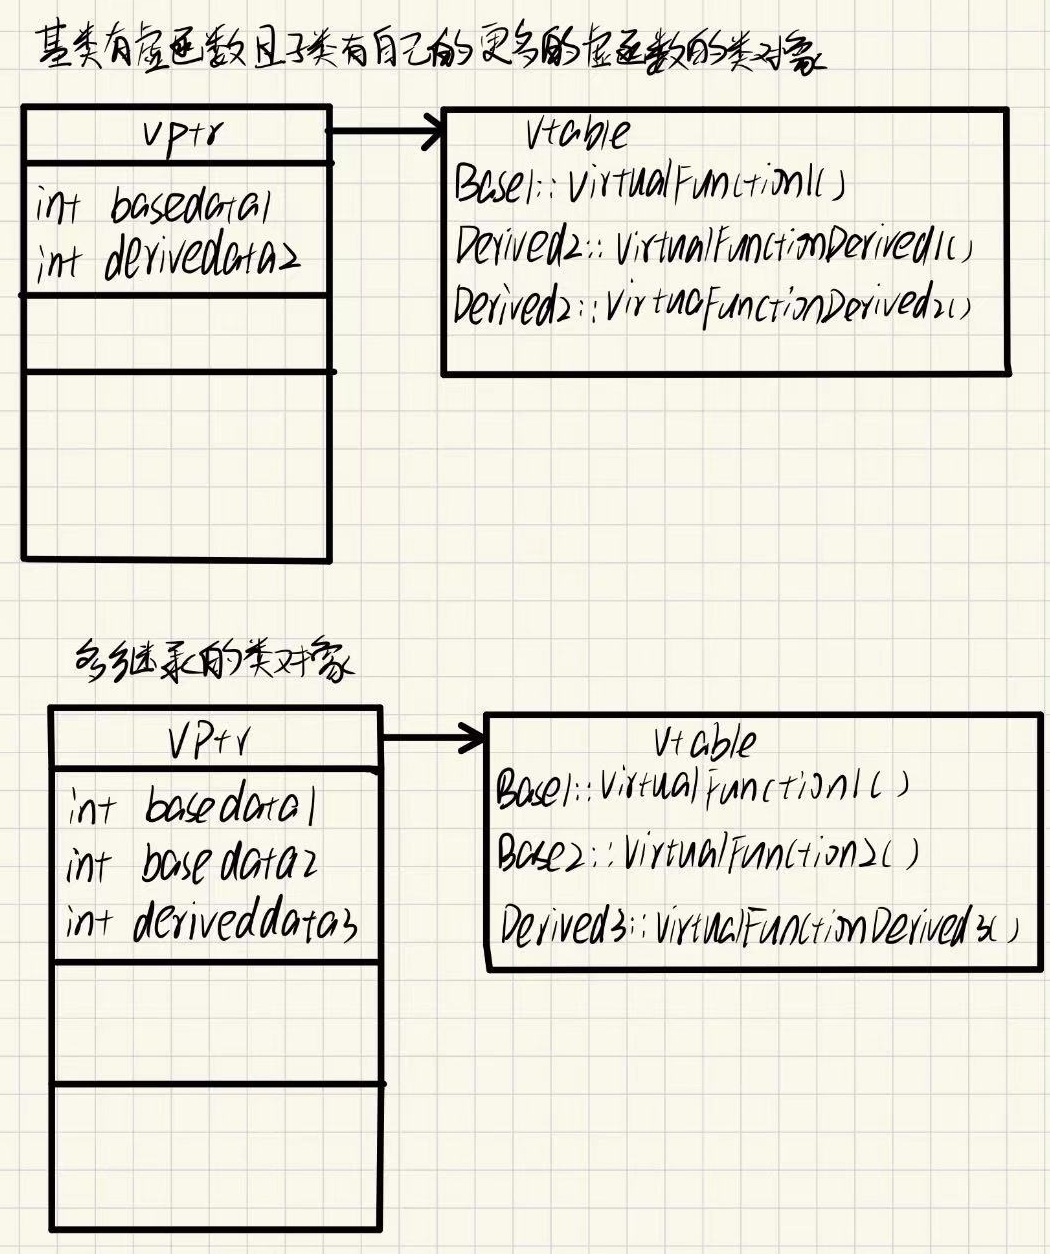 基类有虚函数且子类有自己的更多的虚函数的类对象
vptr
int basedata1
int derivedata2
Vtable
Base1::VirtualFunction1()
Derived2::VirtualFunctionDerived1()
Derived2::VirtuaFunctionDerived2()
多继承的类对象
VPtr
int basedata1
int basedata2
int deriveddata3
Vtable
Base1::VirtualFunction1()
Base2::VirtualFunction2()
Derived3::VirtualFunctionDerived3()